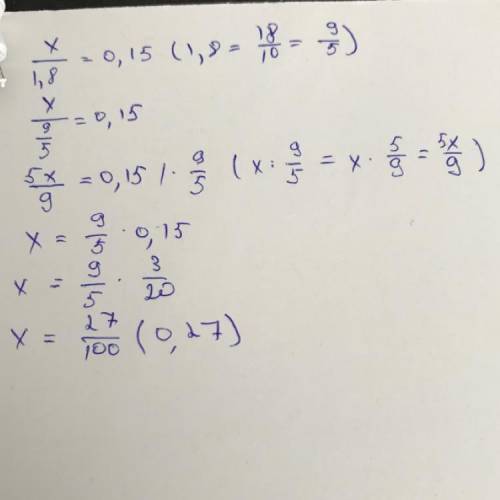 x/1,8 = 0,15 (1,8 = 18/10 = 9/5)
x/(9/5) = 0,15
5x/9 = 0,15 / · 9/5 (x : 9/5 = x · 5/9 = 5x/9)
x = 9/5 · 0,15
x = 9/5 · 3/20
x = 27/100 (0,27)